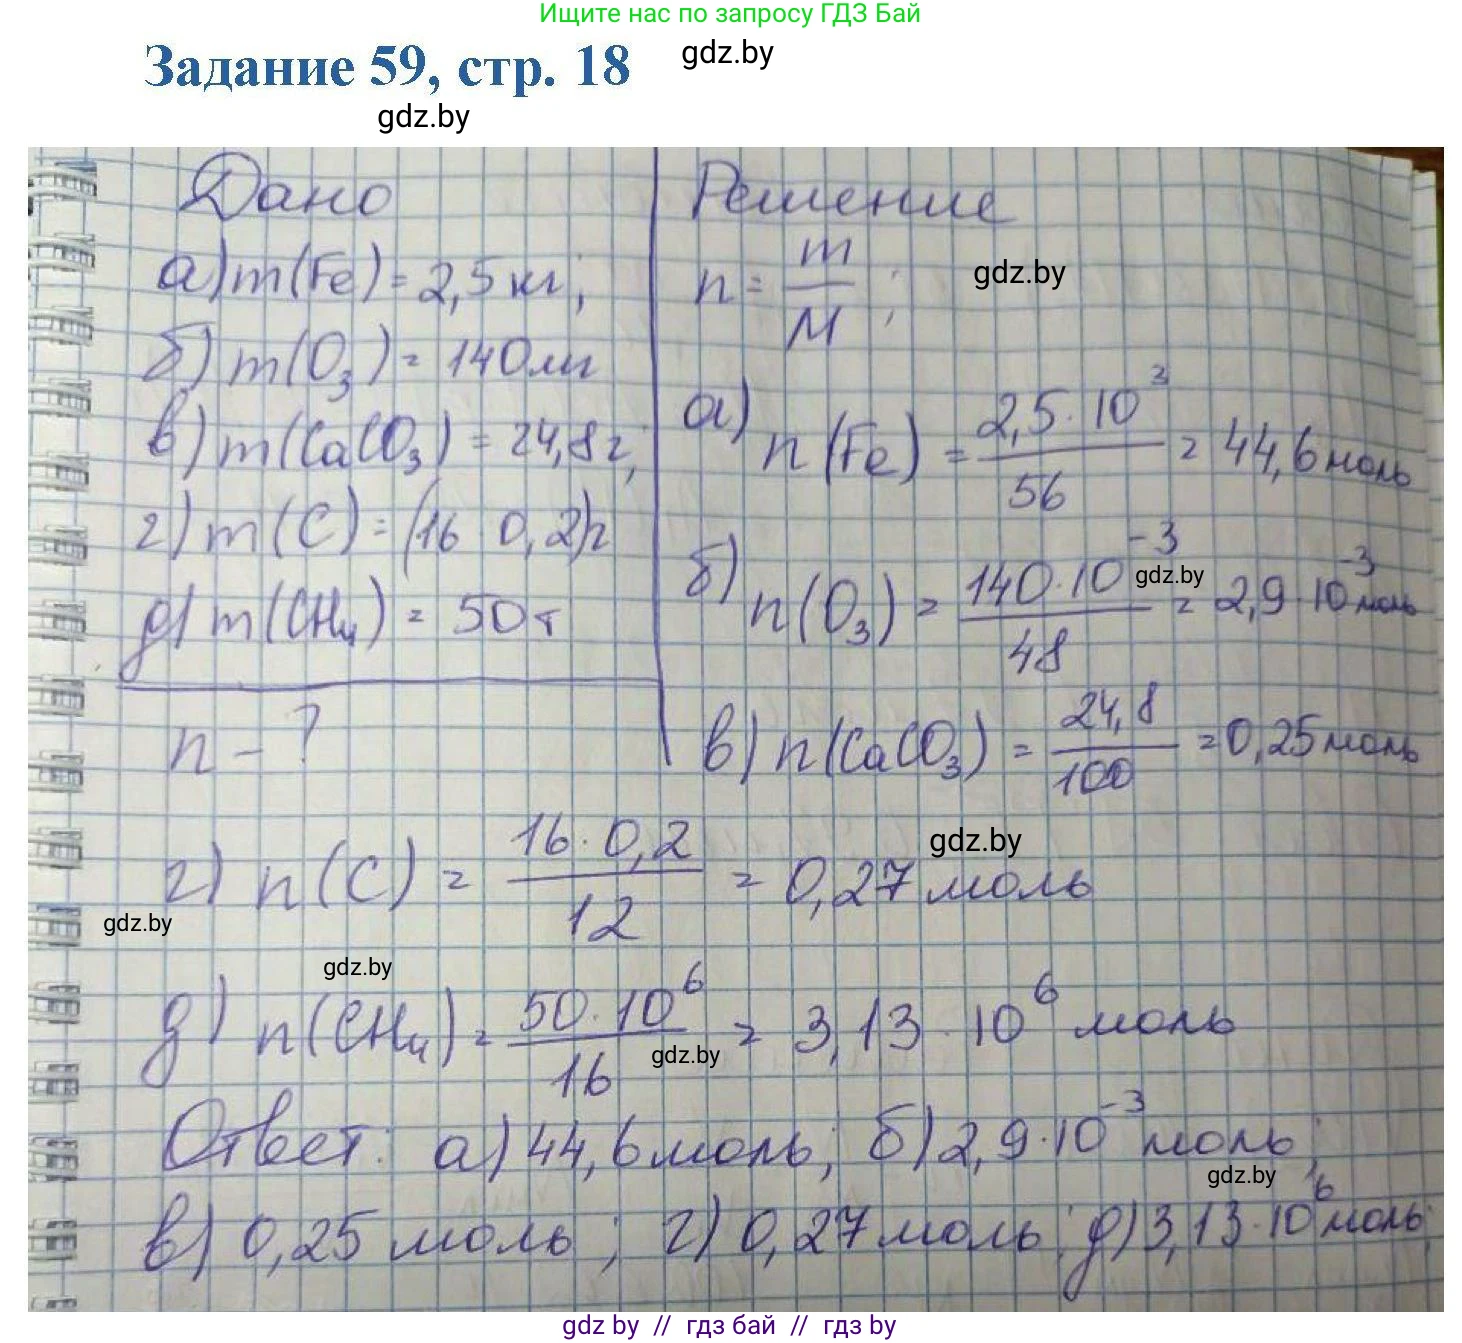 Ищите нас по запросу ГДЗ Бай
Задание 59, стр. 18 gdz.by
gdz.by
Дано
а) m(Fe) = 2,5 кг;
б) m(O₃) = 140 мг
в) m(CaCO₃) = 24,8 г;
г) m(C) = (16 0,2) г
д) m(CH₄) = 50 т
n - ?
Решение
n = m/M; gdz.by
а) n(Fe) = 2,5 · 10³/56 = 44,6 моль
б) n(O₃) = 140 · 10⁻³/48 = 2,9 · 10⁻³ моль
gdz.by
в) n(CaCO₃) = 24,8/100 = 0,25 моль
г) n(C) = 16 · 0,2/12 = 0,27 моль
gdz.by
gdz.by
gdz.by
д) n(CH₄) = 50 · 10⁶/16 = 3,13 · 10⁶ моль
gdz.by
Ответ: а) 44,6 моль; б) 2,9 · 10⁻³ моль;
gdz.by
в) 0,25 моль; г) 0,27 моль; д) 3,13 · 10⁶ моль;
gdz by // гдз бай // гдз by